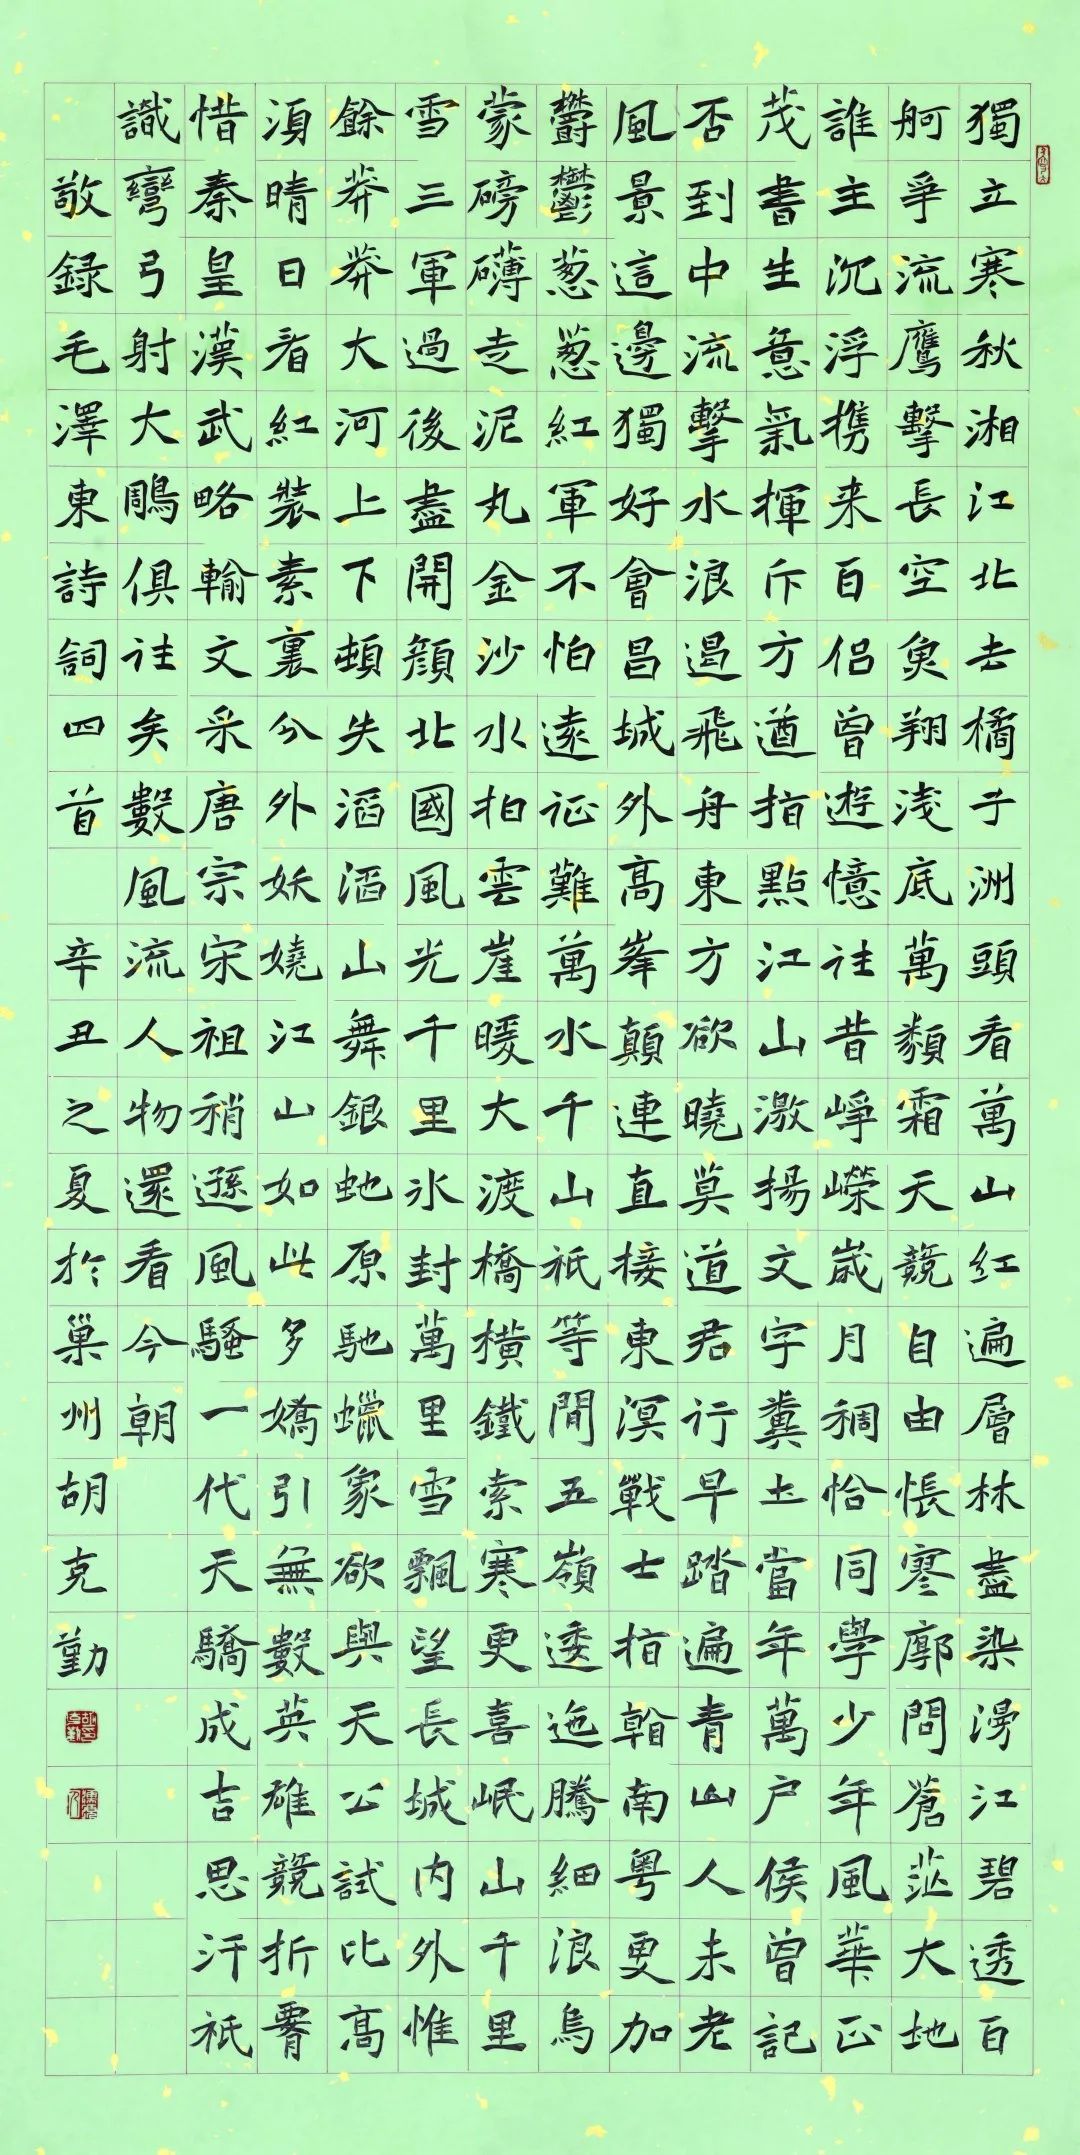 獨立寒秋湘江北去橘子洲頭看萬山紅遍層林盡染漫江碧透百
舸爭流鷹擊長空魚翔淺底萬類霜天競自由悵寥廓問蒼茫大地
誰主沉浮携来百侣曾遊憶往昔崢嶸歲月稠恰同學少年風華正
茂書生意氣揮斥方遒指點江山激揚文字糞土當年萬户侯曾記
否到中流擊水浪遏飛舟東方欲曉莫道君行早踏遍青山人未老
風景這邊獨好會昌城外高峯顛連直接東溟戰士指看南粤更加
鬱鬱葱葱紅軍不怕遠征難萬水千山衹等閒五嶺逶迤騰細浪烏
蒙磅礴走泥丸金沙水拍雲崖暖大渡橋橫鐵索寒更喜岷山千里
雪三軍過後盡開顔北國風光千里氷封萬里雪飄望長城内外惟
餘莽莽大河上下頓失滔滔山舞銀蛇原馳蠟象欲與天公試比高
須晴日看紅裝素裹分外妖嬈江山如此多嬌引無數英雄競折腰
惜秦皇漢武略輸文采唐宗宋祖稍遜風騷一代天驕成吉思汗衹
識彎弓射大鵰俱往矣數風流人物還看今朝
敬録毛澤東詩詞四首 辛丑之夏於巢州胡克勤